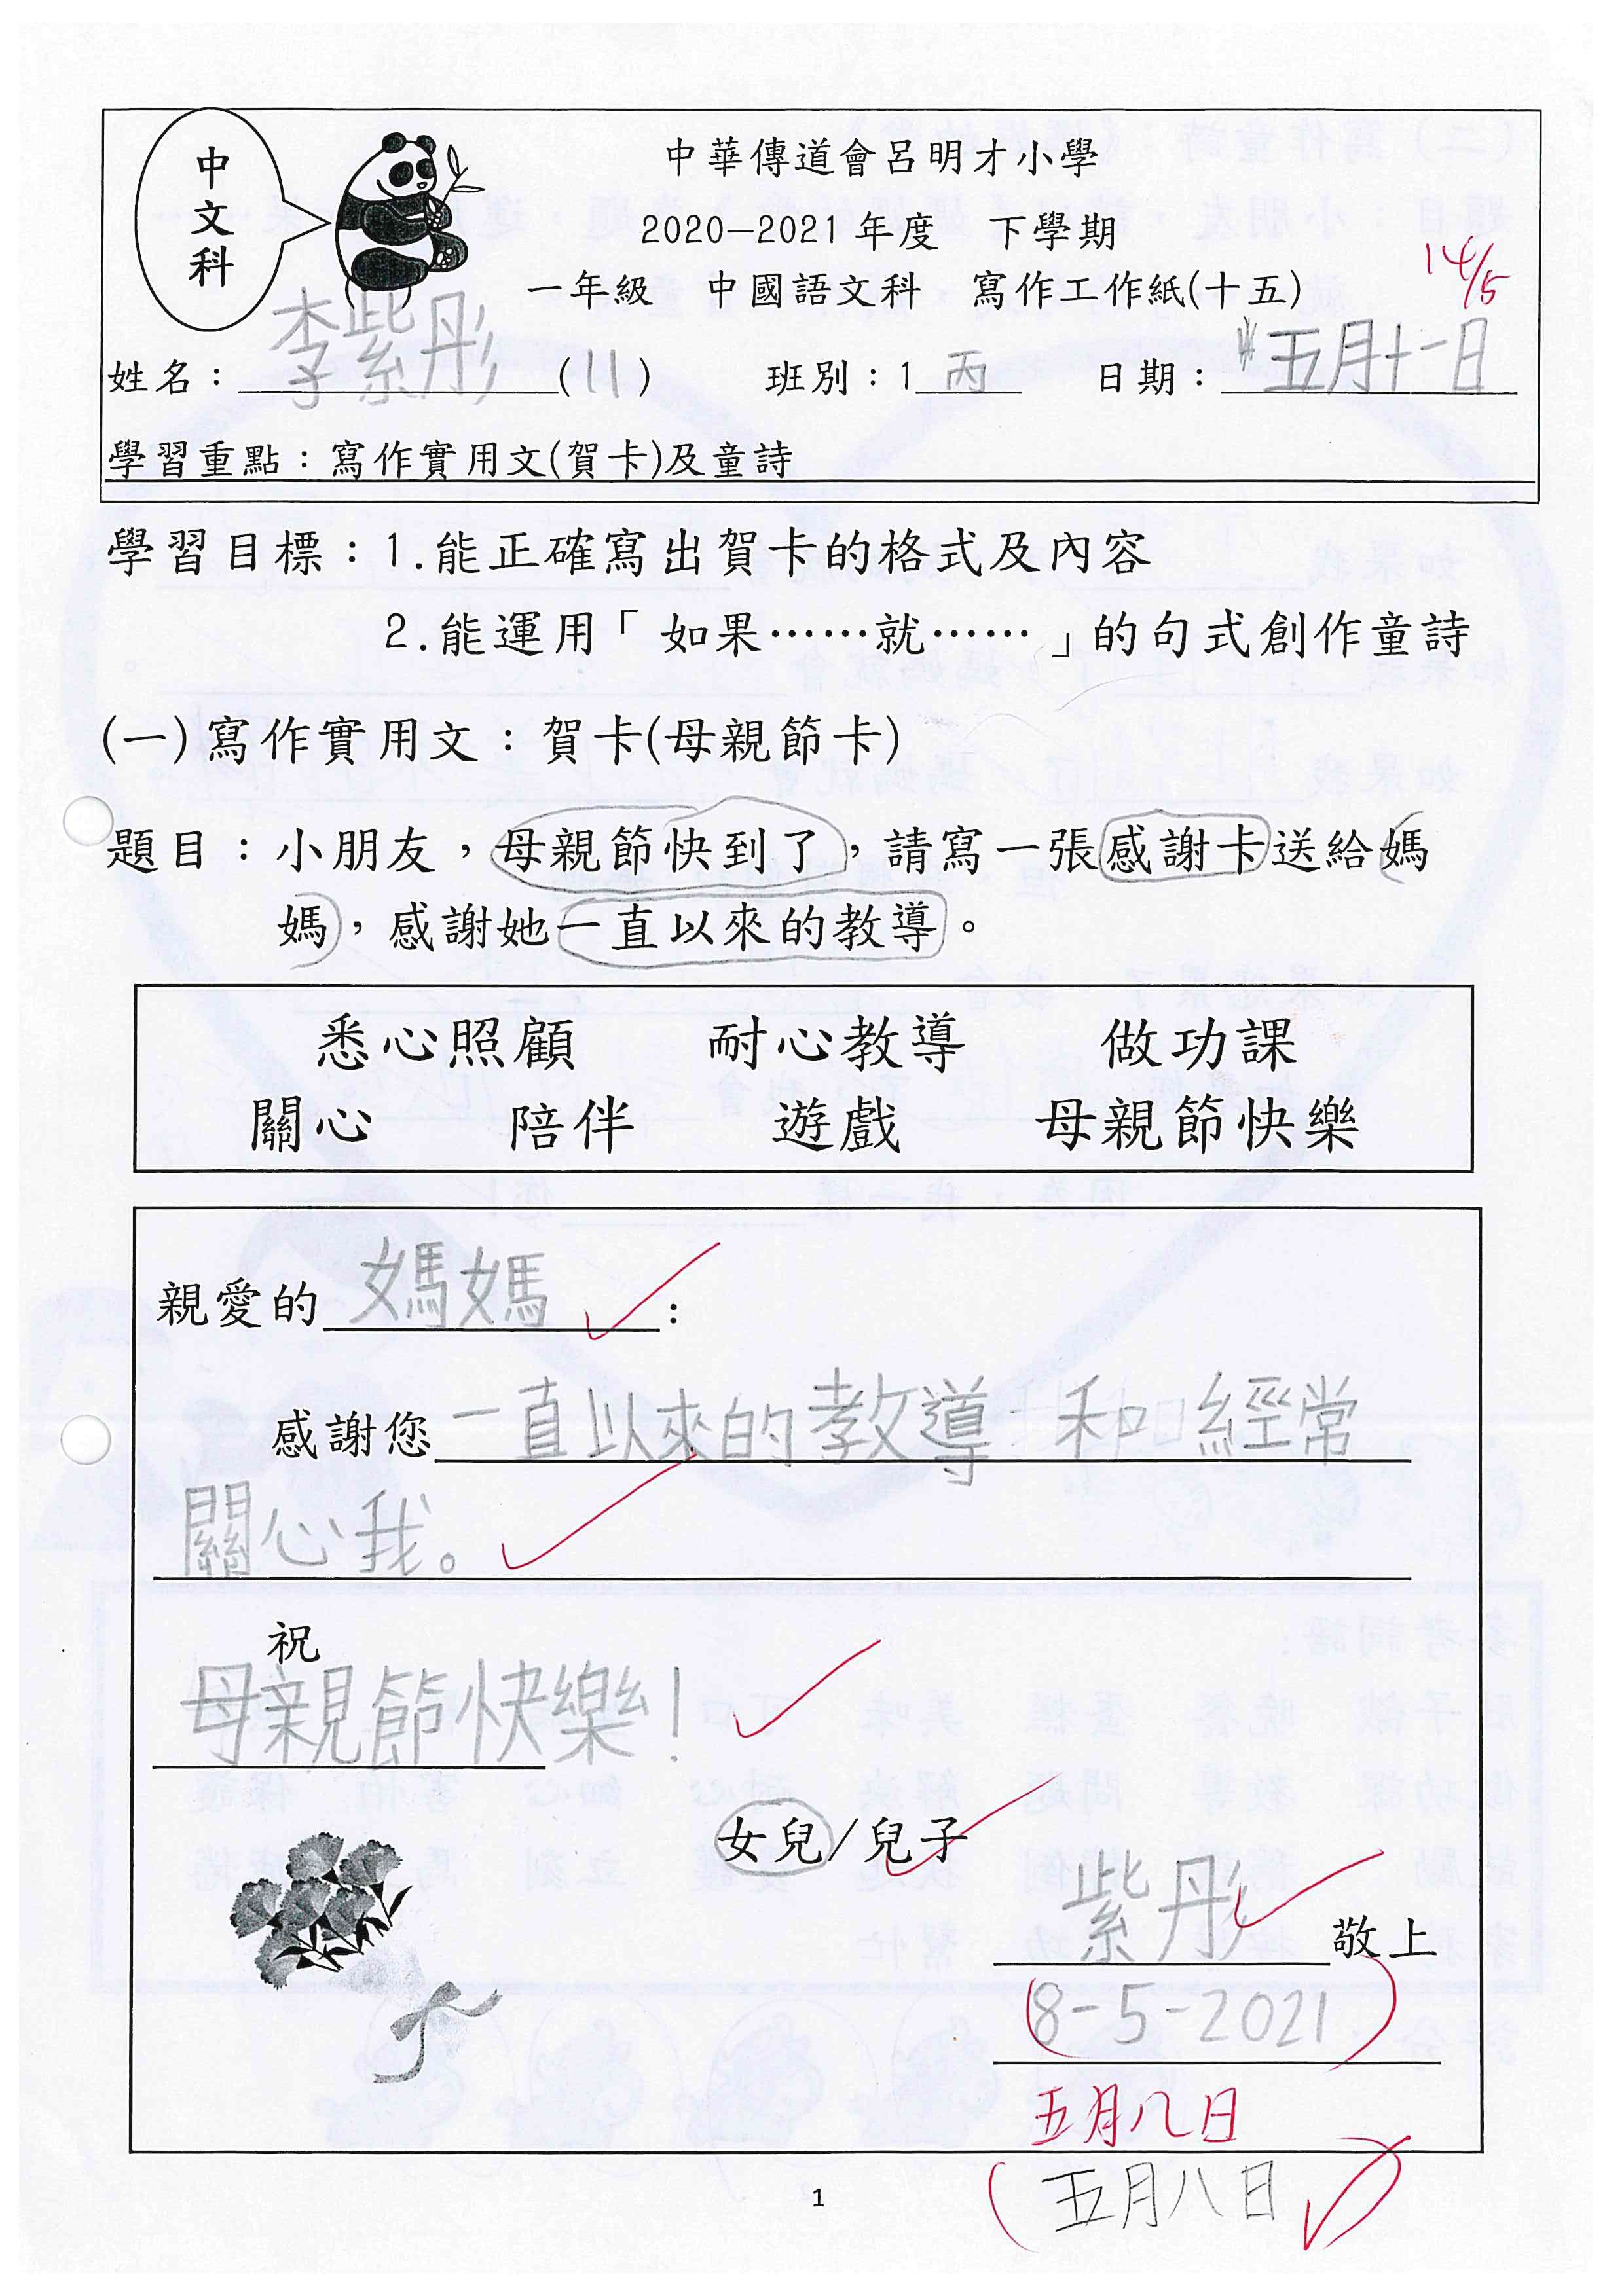 中文科
中華傳道會呂明才小學
2020-2021年度 下學期
一年級 中國語文科 寫作工作紙(十五)
14/5
姓名：李紫彤(11) 班別：1丙 日期：五月十一日
學習重點：寫作實用文(賀卡)及童詩
學習目標：1.能正確寫出賀卡的格式及內容
2.能運用「如果……就……」的句式創作童詩
(一)寫作實用文：賀卡(母親節卡)
題目：小朋友，母親節快到了，請寫一張感謝卡送給媽
媽，感謝她一直以來的教導。
悉心照顧 耐心教導 做功課
關心 陪伴 遊戲 母親節快樂
親愛的媽媽：
感謝您一直以來的教導和經常
關心我。
祝
母親節快樂！
女兒/兒子
紫彤敬上
8-5-2021
五月八日
五月八日
1